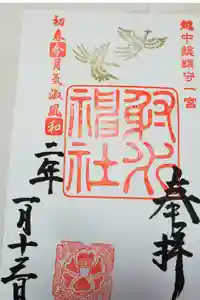 越中総鎮守一宮
奉拝
射水
神社
初春令月氣淑風和
二年
一月十三日